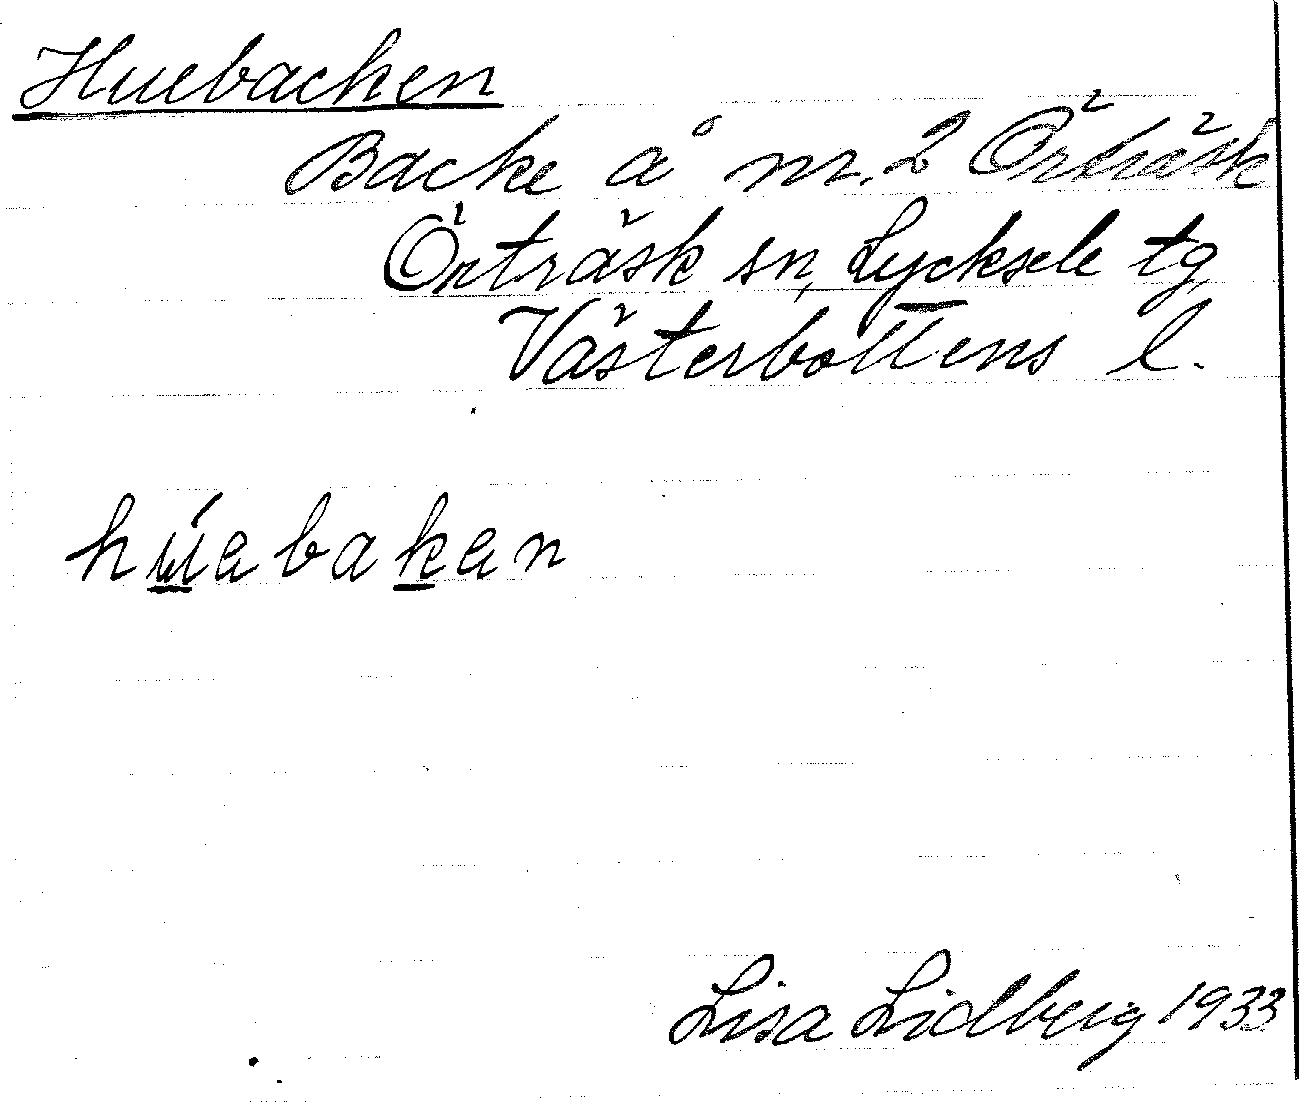 Huebacken
Backe å nr. 2 Örträsk
Örträsk sn, Lycksele tg
Västerbottens l.
húebaken
Lisa Lidberg 1933